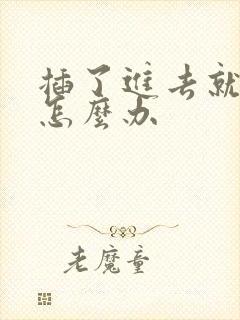 插了進去就
怎麼办
老魔童